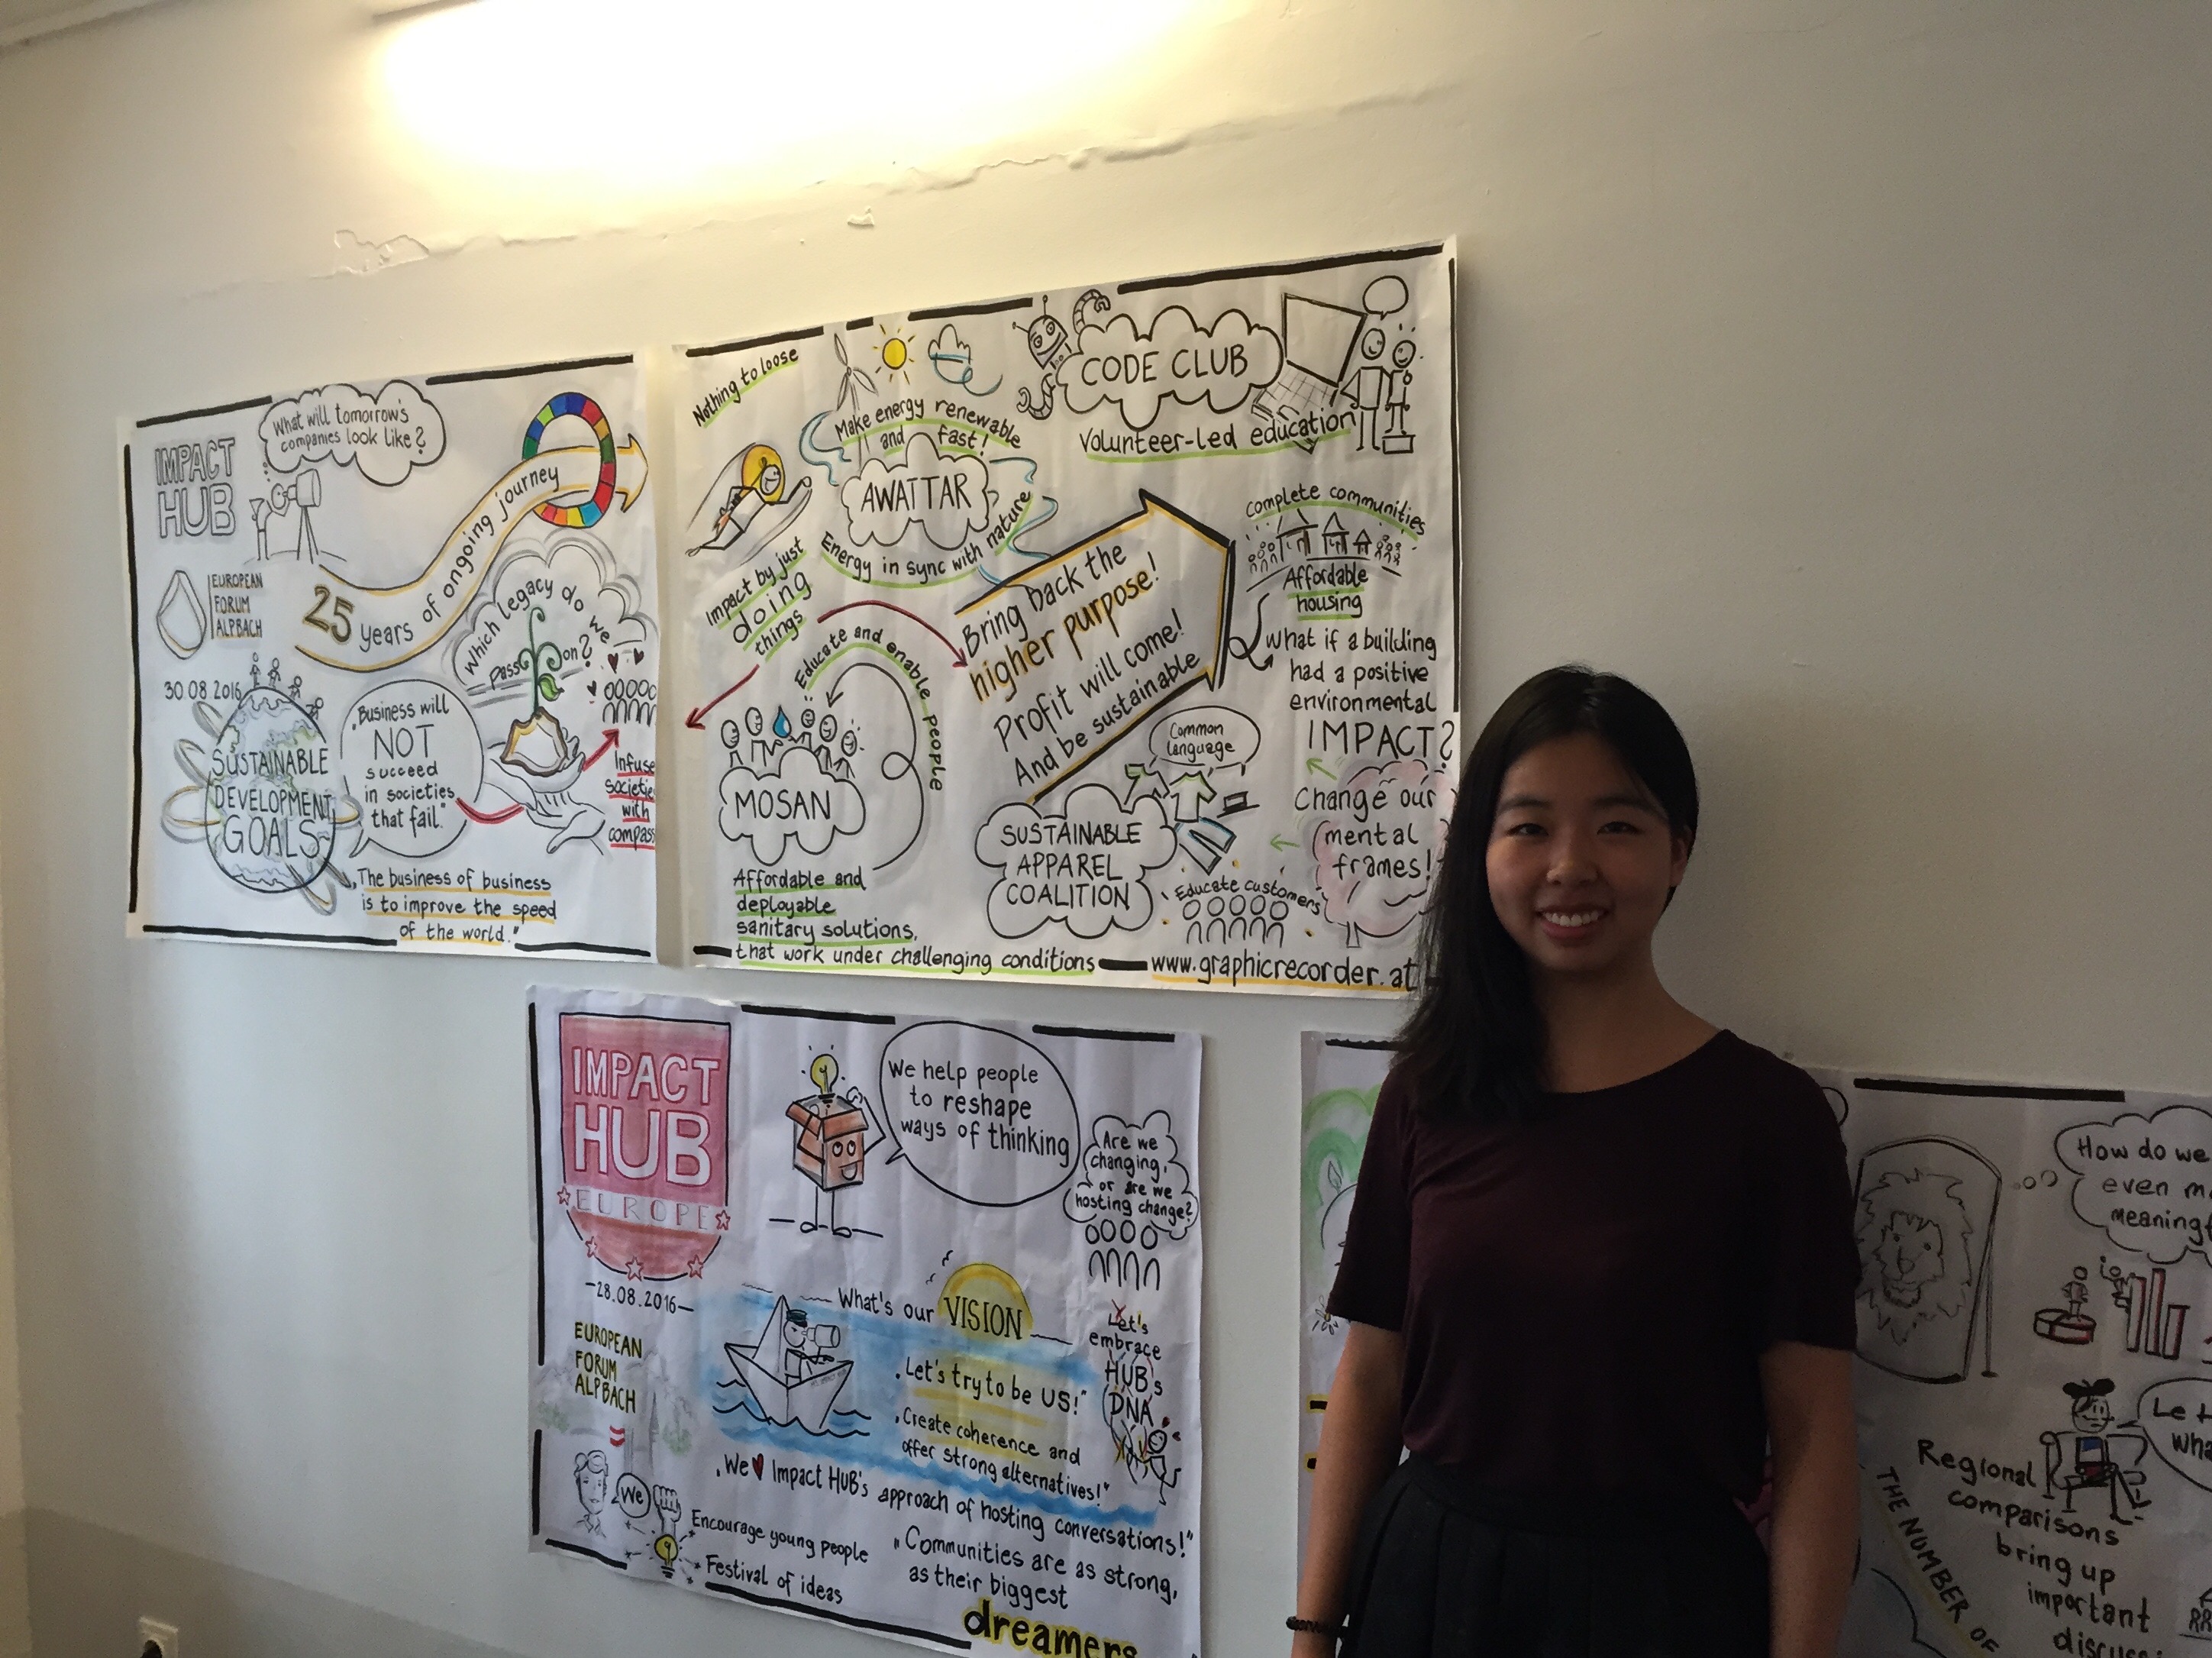 IMPACT
HUB
What will tomorrow's
companies look like?
25 years of ongoing journey
EUROPEAN
FORUM
ALPBACH
30 08 2016
SUSTAINABLE
DEVELOPMENT
GOALS
„Business will
NOT
succeed
in societies
that fail."
Which legacy do we
pass on?
Infuse
societies
with
compass
„The business of business
is to improve the speed
of the world."
Nothing to loose
Make energy renewable
and fast!
AWATTAR
Energy in sync with nature
CODE CLUB
Volunteer-led education
Impact by just
doing
things
Bring back the
higher purpose!
Profit will come!
And be sustainable
Complete communities
Affordable
housing
What if a building
had a positive
environmental
IMPACT?
Change our
mental
frames!
Educate and enable people
MOSAN
Affordable and
deployable
sanitary solutions,
that work under challenging conditions
Common
language
SUSTAINABLE
APPAREL
COALITION
Educate customers
www.graphicrecorder.at
IMPACT
HUB
EUROPE
-28.08.2016-
EUROPEAN
FORUM
ALPBACH
We help people
to reshape
ways of thinking
Are we
changing,
or are we
hosting change?
What's our VISION
„Let's try to be US!"
„Create coherence and
offer strong alternatives!"
Let's
embrace
HUB's
DNA
„We Impact HUB's approach of hosting conversations!"
We
Encourage young people
Festival of ideas
„Communities are as strong,
as their biggest
dreamers
How do we
even
meaning
Let
wha
Regional
comparisons
bring up
important
THE NUMBER OF